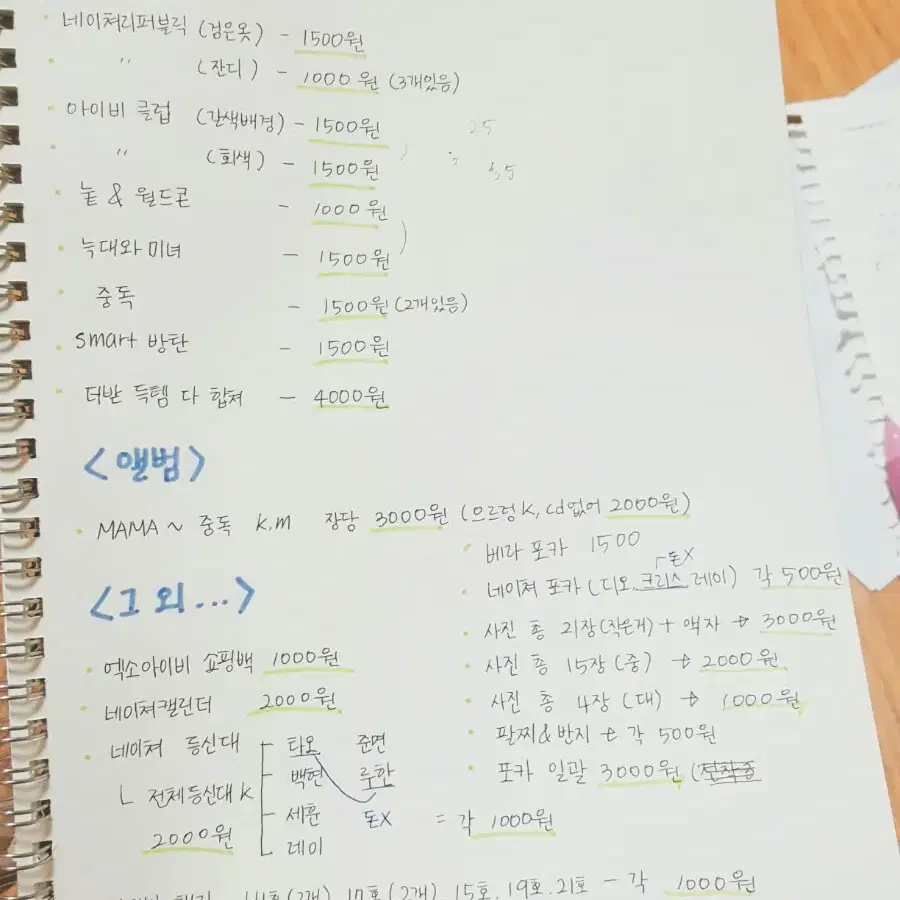 네이쳐리퍼블릭 (검은옷) - 1500원
〃 (잔디) - 1000원 (3개있음)
아이비 클럽 (갈색배경) - 1500원
25
〃 (회색) - 1500원
눝 & 월드콘 - 1000원
늑대와 미녀 - 1500원
중독 - 1500원 (2개있음)
smart 방탄 - 1500원
더반 득템 다 합쳐 - 4000원
<앨범>
MAMA ~ 중독 K.M 장당 3000원 (으르렁 K, cd없어 2000원)
<그 외...>
엑소아이비 쇼핑백 1000원
네이쳐캘린더 2000원
네이쳐 등신대
타오 준면
백현 루한
세훈 돈X
레이
= 각 1000원
ㄴ 전체등신대 K
2000원
베라 포카 1500
돈X
네이쳐 포카 (디오, 크리스, 레이) 각 500원
사진 총 21장(작은거) + 액자 → 3000원
사진 총 15장 (중) → 2000원
사진 총 4장 (대) → 1000원
팔찌&반지 → 각 500원
포카 일괄 3000원
(2개) 17호 (2개) 15호. 19호. 21호 - 각 1000원